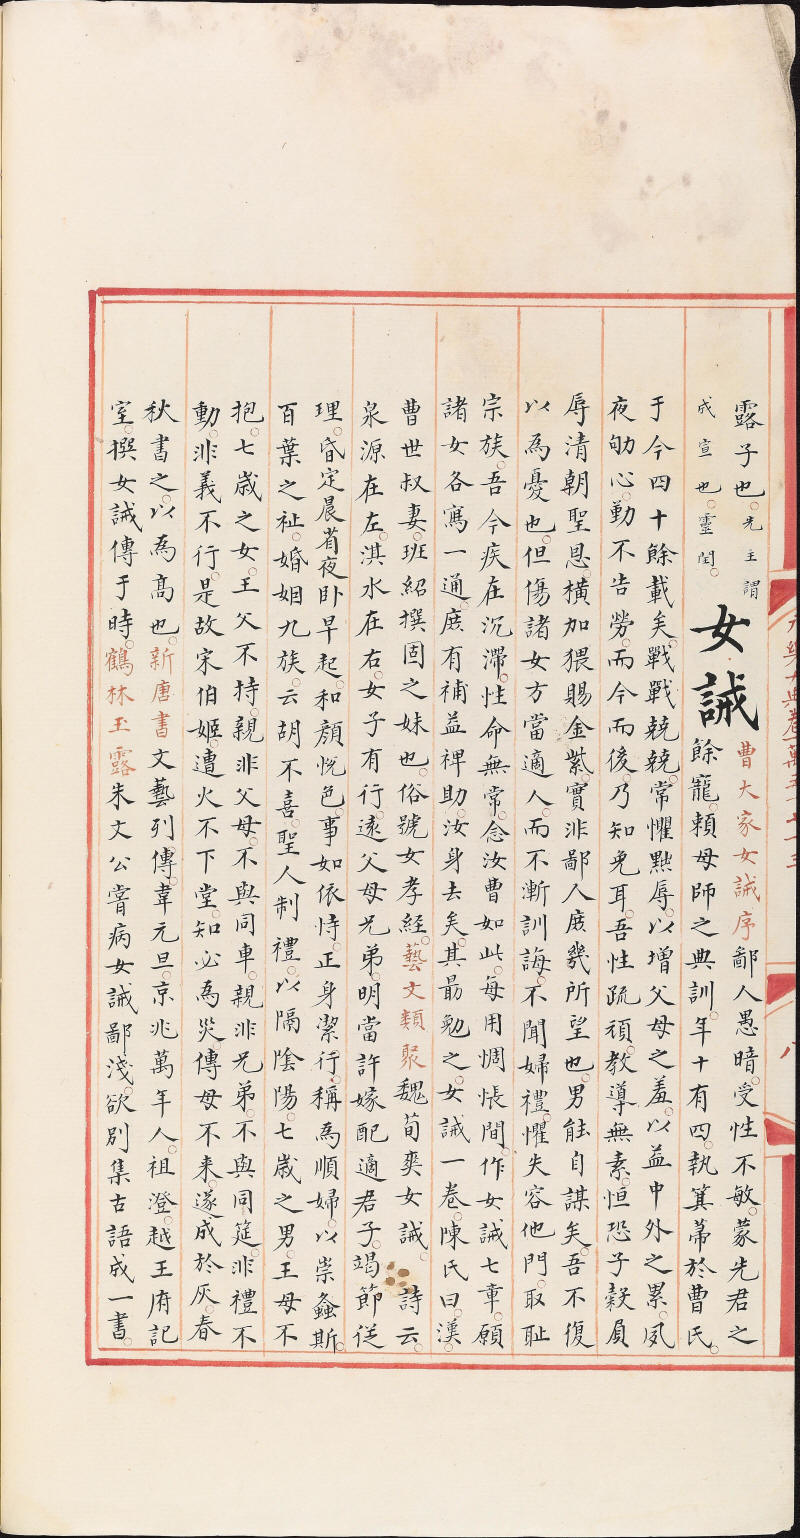 露子也。先主謂
成宣也。靈閏。
女誡
曹大家女誡序鄙人愚暗。受性不敏。蒙先君之
餘寵。賴母師之典訓。年十有四。執箕帚於曹氏。
于今四十餘載矣。戰戰兢兢。常懼黜辱。以增父母之羞。以益中外之累。夙
夜劬心。勤不告勞。而今而後。乃知免耳。吾性疏頑。教導無素。恒恐子穀負
辱清朝。聖恩橫加。猥賜金紫。實非鄙人庶幾所望也。男能自謀矣。吾不復
以為憂也。但傷諸女方當適人。而不漸訓誨。不聞婦禮。懼失容他門。取恥
宗族。吾今疾在沉滯。性命無常。念汝曹如此。每用惆悵。間作女誡七章。願
諸女各寫一通。庶有補益。裨助汝身。去矣。其最勉之。女誡一卷。陳氏曰。漢
曹世叔妻。班紹撰。固之妹也。俗號女孝經。藝文類聚魏荀爽女誡。詩云。
泉源在左。淇水在右。女子有行。遠父母兄弟。明當許嫁。配適君子。竭節從
理。昏定晨省。夜卧早起。和顏悅色。事如依恃。正身潔行。稱為順婦。以崇螽斯。
百葉之祉。婚姻九族。云胡不喜。聖人制禮。以隔陰陽。七歲之男。王母不
抱。七歲之女。王父不持。親非父母。不與同車。親非兄弟。不與同筵。非禮不
動。非義不行。是故宋伯姬。遭火不下堂。知必為災。傳母不來。遂成於灰。春
秋書之。以為高也。新唐書文藝列傳。韋元旦。京兆萬年人。祖澄。越王府記
室。撰女誡傳于時。鶴林玉露朱文公嘗病女誡鄙淺。欲別集古語。成一書。
八